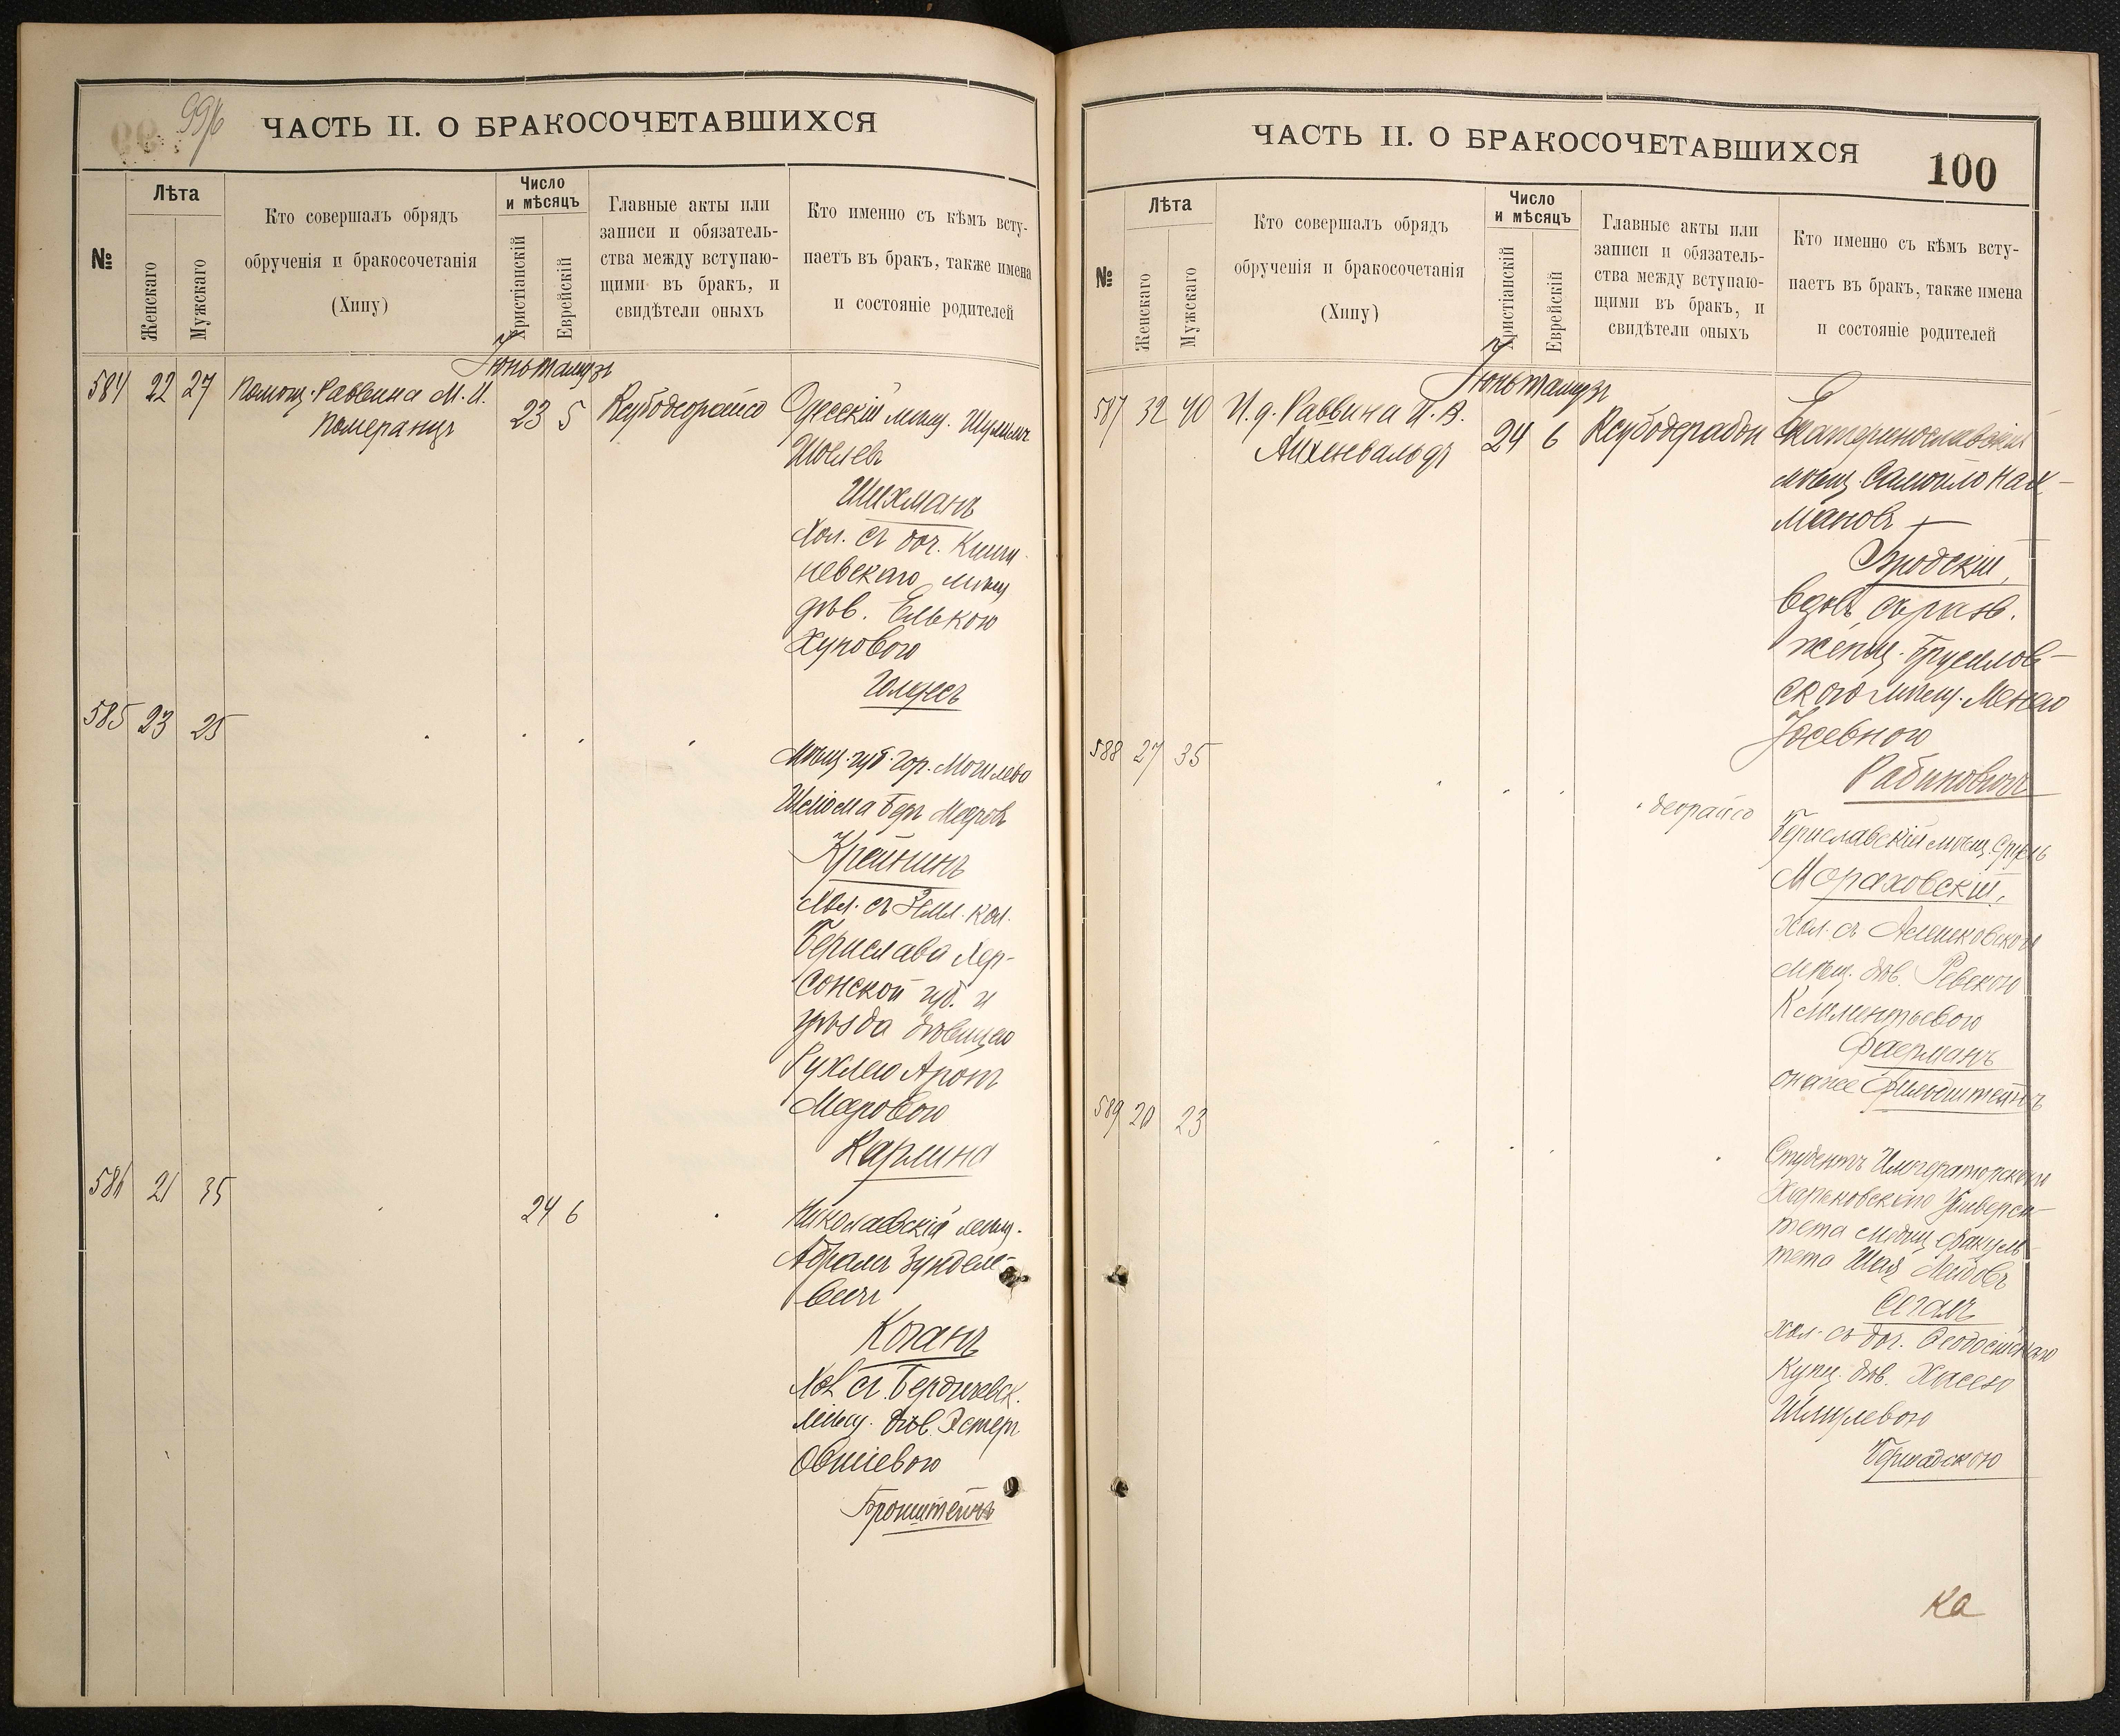 99/б
ЧАСТЬ II. О БРАКОСОЧЕТАВШИХСЯ
№
Лѣта
Женскаго
Мужскаго
Кто совершалъ обрядъ
обрученія и бракосочетанія
(Хипу)
Число
и мѣсяцъ
Христіанскій
Еврейскій
Главные акты или
записи и обязатель-
ства между вступаю-
щими въ бракъ, и
свидѣтели оныхъ
Кто именно съ кѣмъ всту-
паетъ въ бракъ, также имена
и состояніе родителей
Іюнь Тамузъ
584 22 27 Помощ. Раввина М. И. 23 5 Ксубодеорайсо Одесскій мѣщ. Шулимъ
Померанцъ
Шихманъ
Хол. съ доч. Киши-
невскаго мѣщ
дѣв. Елькою
585 23 25
Мѣщ. губ. гор. Могилева
Шлiома Беръ Мееровъ
Крейнинъ
Хол. съ Земл. кол.
Берислава Хер-
сонской губ. и
уѣзда дѣвицею
Рухлею Аронъ
Мееровою
Карлина
586 21 35 24 6
Николаевскій мѣщ.
Абрамъ Зунделе-
вичъ
Коганъ
Хол съ Бердичевск.
мѣщ. дѣв. Эстеръ
Овшіевою
Бронштейнъ
ЧАСТЬ II. О БРАКОСОЧЕТАВШИХСЯ
100
№
Лѣта
Женскаго
Мужскаго
Кто совершалъ обрядъ
обрученія и бракосочетанія
(Хипу)
Число
и мѣсяцъ
Христіанскій
Еврейскій
Главные акты или
записи и обязатель-
ства между вступаю-
щими въ бракъ, и
свидѣтели оныхъ
Кто именно съ кѣмъ всту-
паетъ въ бракъ, также имена
и состояніе родителей
Іюнь Тамузъ
587 32 40 И. д. Раввина И. В. 24 6 Ксубодерабон Екатеринославскій
Айхенвальдъ
мѣщ. Самойло Нах-
мановъ
Бродскій,
вдов. съ разв.
женщ. Брусилов-
ского мѣщ. Менею
Іосевною
Рабиновичъ
588 27 35
деорайсо
Бериславскій мѣщ. Сруль
Мораховскій,
хол. съ Алешковскою
мѣщ. дѣв. Ревекою
Климентьевою
Фаерманъ
она же Фильдштейнъ
589 20 23
Студентъ Императорскаго
Харьковскаго Универси-
тета медиц. факуль-
тета Шая Лейбовъ
Сегалъ
хол. съ доч. Феодосійскаго
Купц. дѣв. Хасею
Шмулевою
Бермадскою
Ка